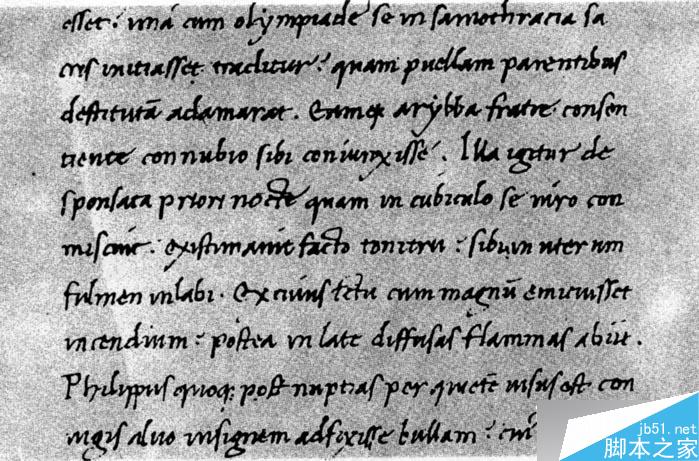 esset: una cum olympiade se in samothracia sa
cris initiasset traditur: quam puellam parentibus
destitutā adamarat. Eamq arybba fratre consen
tiente connubio sibi coniunxisse. Illa igitur de
sponsata priori nocte quam in cubiculo se viro con
miscuit: existimavit facto tonitru: sibi in uterum
fulmen inlabi. Ex cuius ictu cum magnū emicuisset
incendium: postea in late diffusas flammas abiit.
Philippus quoq; post nuptias per quietē visus est con
iugis alvo insignem adfixisse bullam:
jb51.net
脚本之家